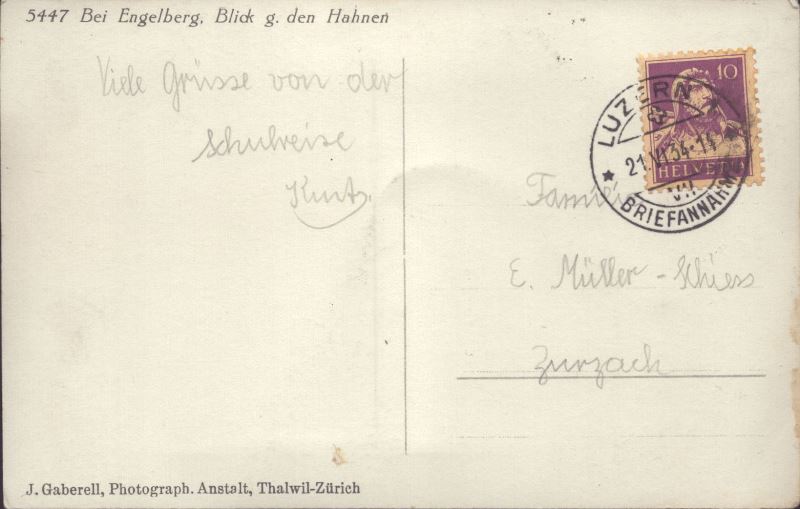 5447 Bei Engelberg, Blick g. den Hahnen
Viele Grüsse von der
Schulreise
Kurt.
10
HELVETIA
LUZERN
21.VI.34-14
VII
BRIEFANNAHME
Familie
E. Müller-Schiess
Zurzach
J. Gaberell, Photograph. Anstalt, Thalwil-Zürich